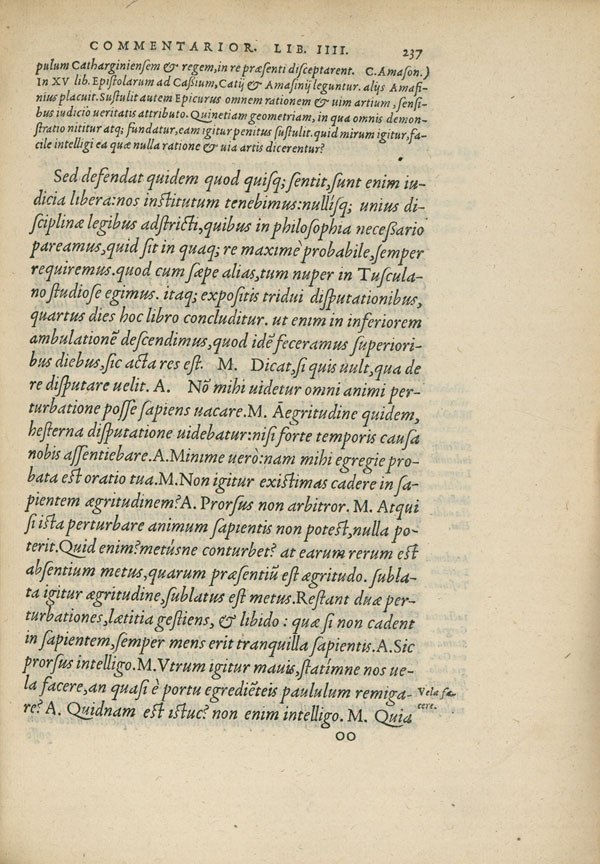 COMMENTARIOR. LIB. IIII. 237
pulum Catharginiensem & regem, in re præsenti disceptarent. C. Amason.)
In XV lib. Epistolarum ad Caßium, Catij & Amasinij leguntur. alijs Amafi-
nius placuit. Sustulit autem Epicurus omnem rationem & uim artium, sensi-
bus iudicio ueritatis attributo. Quinetiam geometriam, in qua omnis demon-
stratio nititur atq; fundatur, eam igitur penitus sustulit. quid mirum igitur, fa-
cile intelligi ea quæ nulla ratione & uia artis dicerentur?
Sed defendat quidem quod quisq; sentit, sunt enim iu-
dicia libera: nos institutum tenebimus: nullisq; unius di-
sciplinæ legibus adstricti, quibus in philosophia necessario
pareamus, quid sit in quaq; re maximè probabile, semper
requiremus. quod cum sæpe alias, tum nuper in Tuscula-
no studiose egimus. itaq; expositis tridui disputationibus,
quartus dies hoc libro concluditur. ut enim in inferiorem
ambulationē descendimus, quod idē feceramus superiori-
bus diebus, sic acta res est. M. Dicat, si quis uult, qua de
re disputare uelit. A. Nō mihi uidetur omni animi per-
turbatione posse sapiens uacare. M. Aegritudine quidem,
hesterna disputatione uidebatur: nisi forte temporis causa
nobis assentiebare. A. Minime uerò: nam mihi egregie pro-
bata est oratio tua. M. Non igitur existimas cadere in sa-
pientem ægritudinem? A. Prorsus non arbitror. M. Atqui
si ista perturbare animum sapientis non potest, nulla po-
terit. Quid enim? metúsne conturbet? at earum rerum est
absentium metus, quarum præsentiū est ægritudo. subla-
ta igitur ægritudine, sublatus est metus. Restant duæ per-
turbationes, lætitia gestiens, & libido: quæ si non cadent
in sapientem, semper mens erit tranquilla sapientis. A. Sic
prorsus intelligo. M. Vtrum igitur mauis, statimne nos ue-
la facere, an quasi è portu egrediēteis paululum remiga-
re? A. Quidnam est istuc? non enim intelligo. M. Quia
Vela fa-
cere.
oo